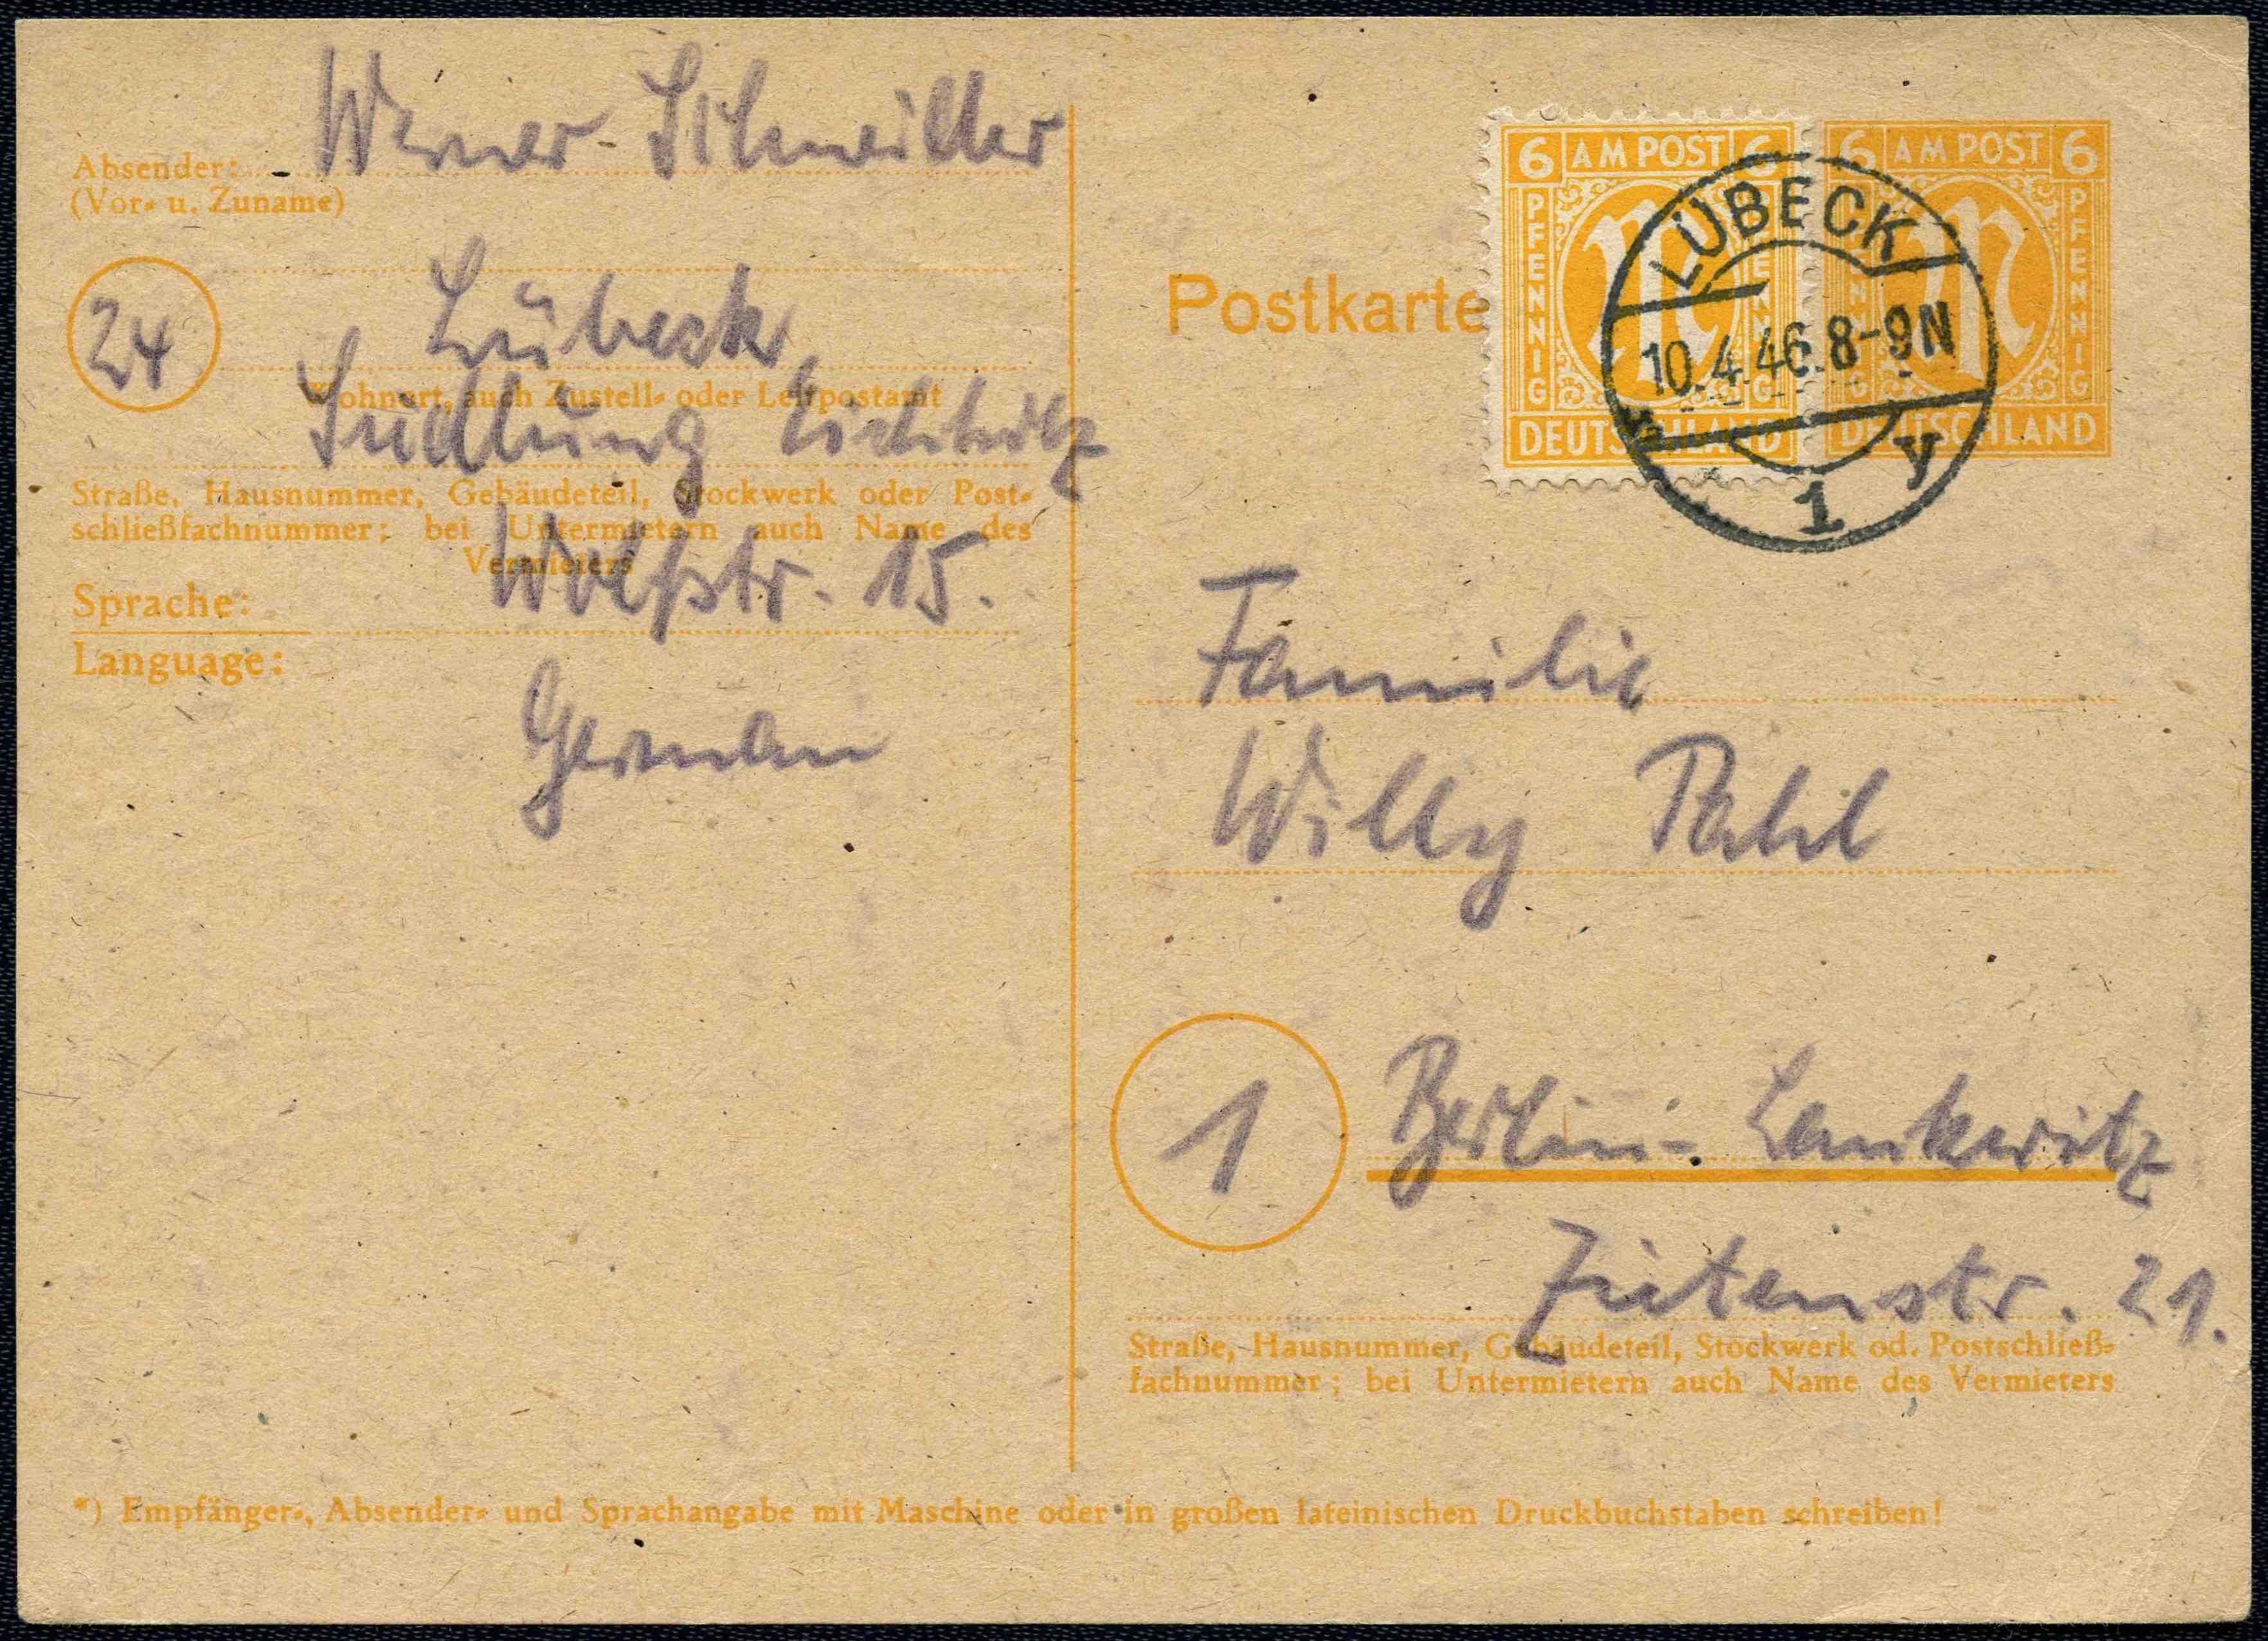 Absender:
(Vor- u. Zuname)
Werner
24
Lübeck,
Wohnort, auch Zustell- oder Leitpostamt
Siedlung Eichholz
Straße, Hausnummer, Gebäudeteil, Stockwerk oder Post-
schließfachnummer; bei Untermietern auch Name des
Vermieters
Wolfstr. 15.
Sprache:
Language:
German
Postkarte
6 AM POST 6
PFENNIG
PFENNIG
DEUTSCHLAND
6 AM POST 6
PFENNIG
PFENNIG
DEUTSCHLAND
LÜBECK
10.4.46.8-9N
1 y
Familie
Willy Pahl
1
Berlin-Lankwitz
Zietenstr. 21.
Straße, Hausnummer, Gebäudeteil, Stockwerk od. Postschließ-
fachnummer; bei Untermietern auch Name des Vermieters
*) Empfänger-, Absender- und Sprachangabe mit Maschine oder in großen lateinischen Druckbuchstaben schreiben!